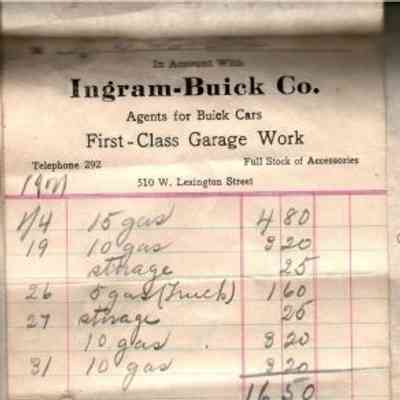 In Account With
Ingram-Buick Co.
Agents for Buick Cars
First-Class Garage Work
Telephone 292 Full Stock of Accessories
510 W. Lexington Street
1/4 15 gas 4 80
19 10 gas 3 20
storage 25
26 5 gas (Truck) 1 60
27 storage 25
10 gas 3 20
31 10 gas 3 20
16 50